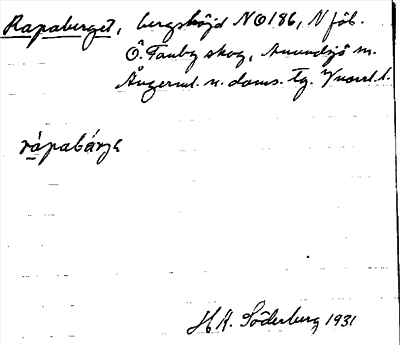 Rapaberget, bergshöjd NO186, N föb.
Ö. Tanby skog, Anundsjö sn.
Ångerml. n. doms. tg. Vnorrl. l.
rápabárje
H.A. Söderberg 1931